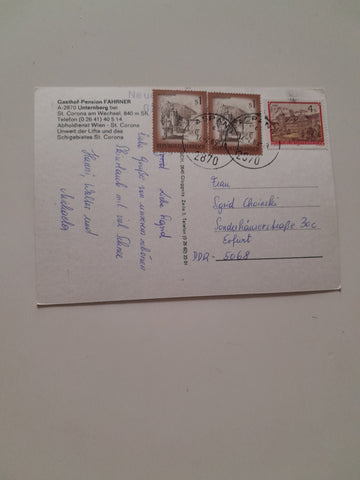 Gasthof-Pension FAHRNER
A-2870 Unternberg bei
St. Corona am Wechsel, 840 m SH,
Telefon (0 26 41) 40 5 14
Abholdienst Wien - St. Corona
Unweit der Lifte und des
Schigebietes St. Corona
2870
2870
S 1
4
Liebe Sigrid
Liebe Grüße von unserem schönen
Skiurlaub mit viel Schnee
Walter und
Michaela
Frau
Sigrid Choinski
Sondershäuserstraße 30c
Erfurt
DDR - 5068